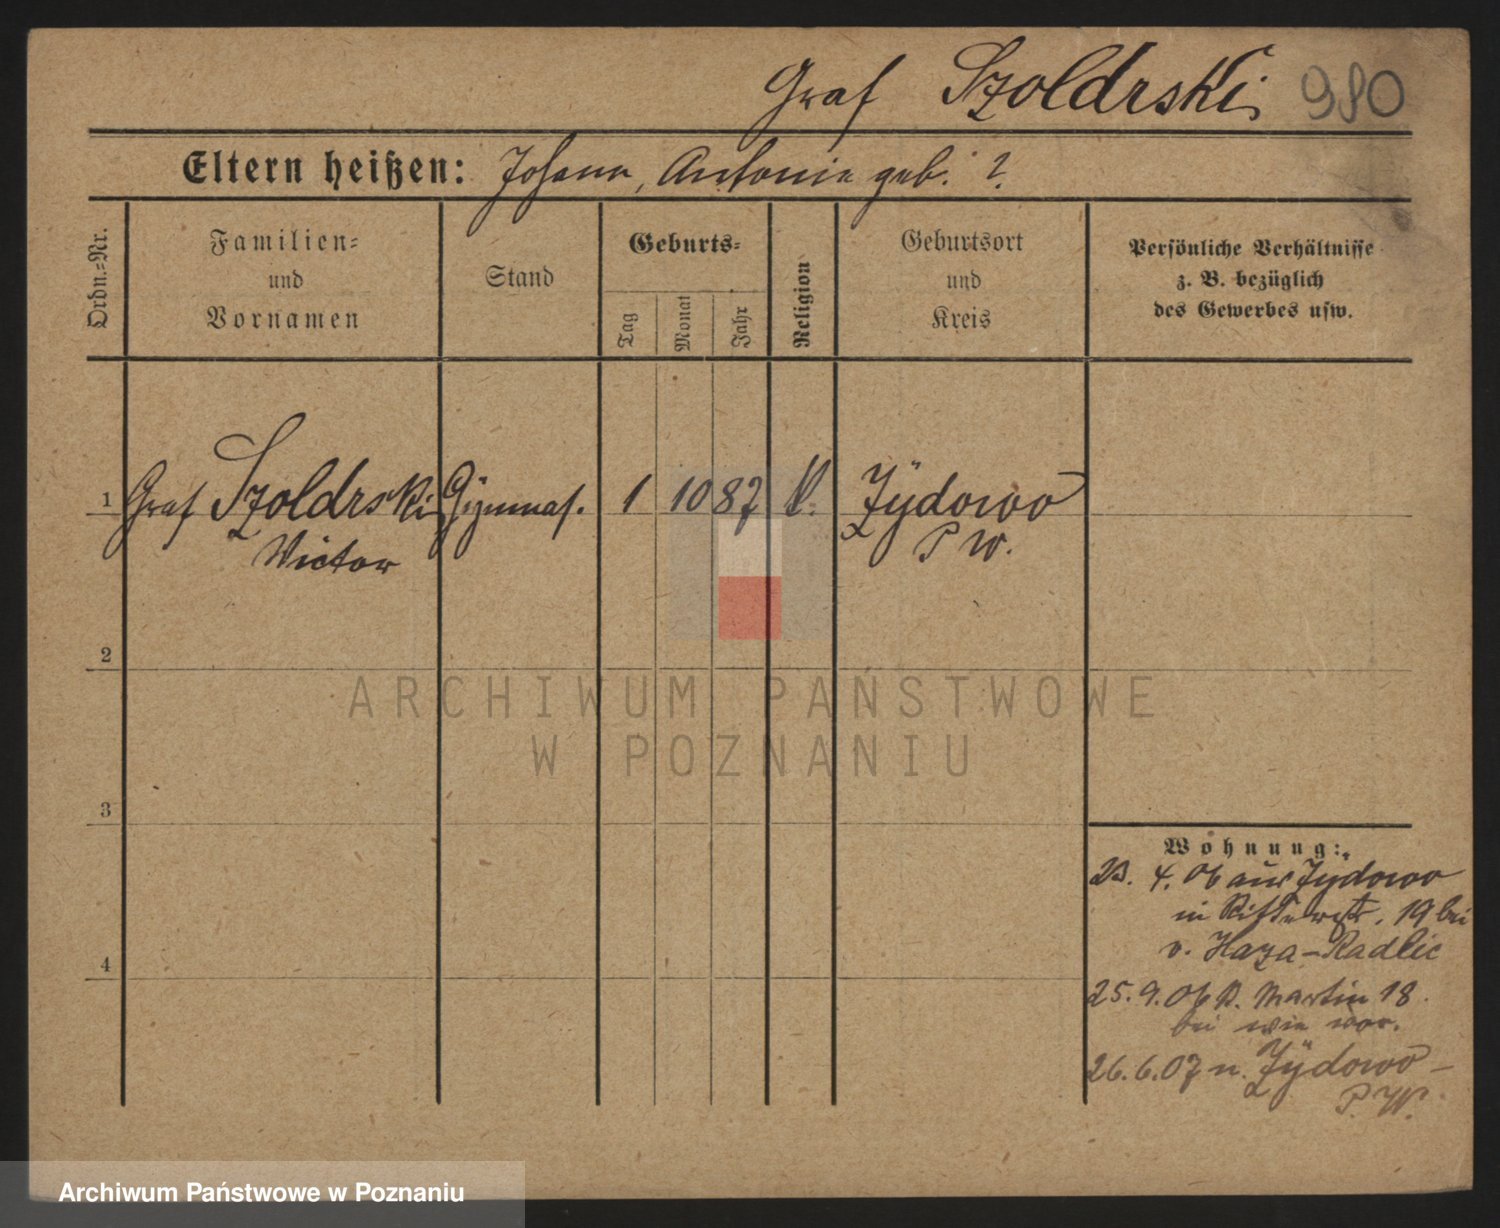 Graf Szoldrski 980
Eltern heißen: Johann, Antonie geb. ?
Ordn.-Nr.
Familien-
und
Vornamen
Stand
Geburts-
Tag
Monat
Jahr
Religion
Geburtsort
und
Kreis
Persönliche Verhältnisse
z. B. bezüglich
des Gewerbes usw.
1 Graf Szoldrski Gymnas. 1 10 87 k. Zÿdowo
Victor P W.
2
3
4
Wohnung:
23. 4. 06 aus Zÿdowo
in Ritterstr. 19 bei
v. Haza-Radlic
25. 9. 06 St. Martin 18
bei wie vor.
26. 6. 07 n. Zÿdowo
P. W.
ARCHIWUM PAŃSTWOWE
W POZNANIU
Archiwum Państwowe w Poznaniu